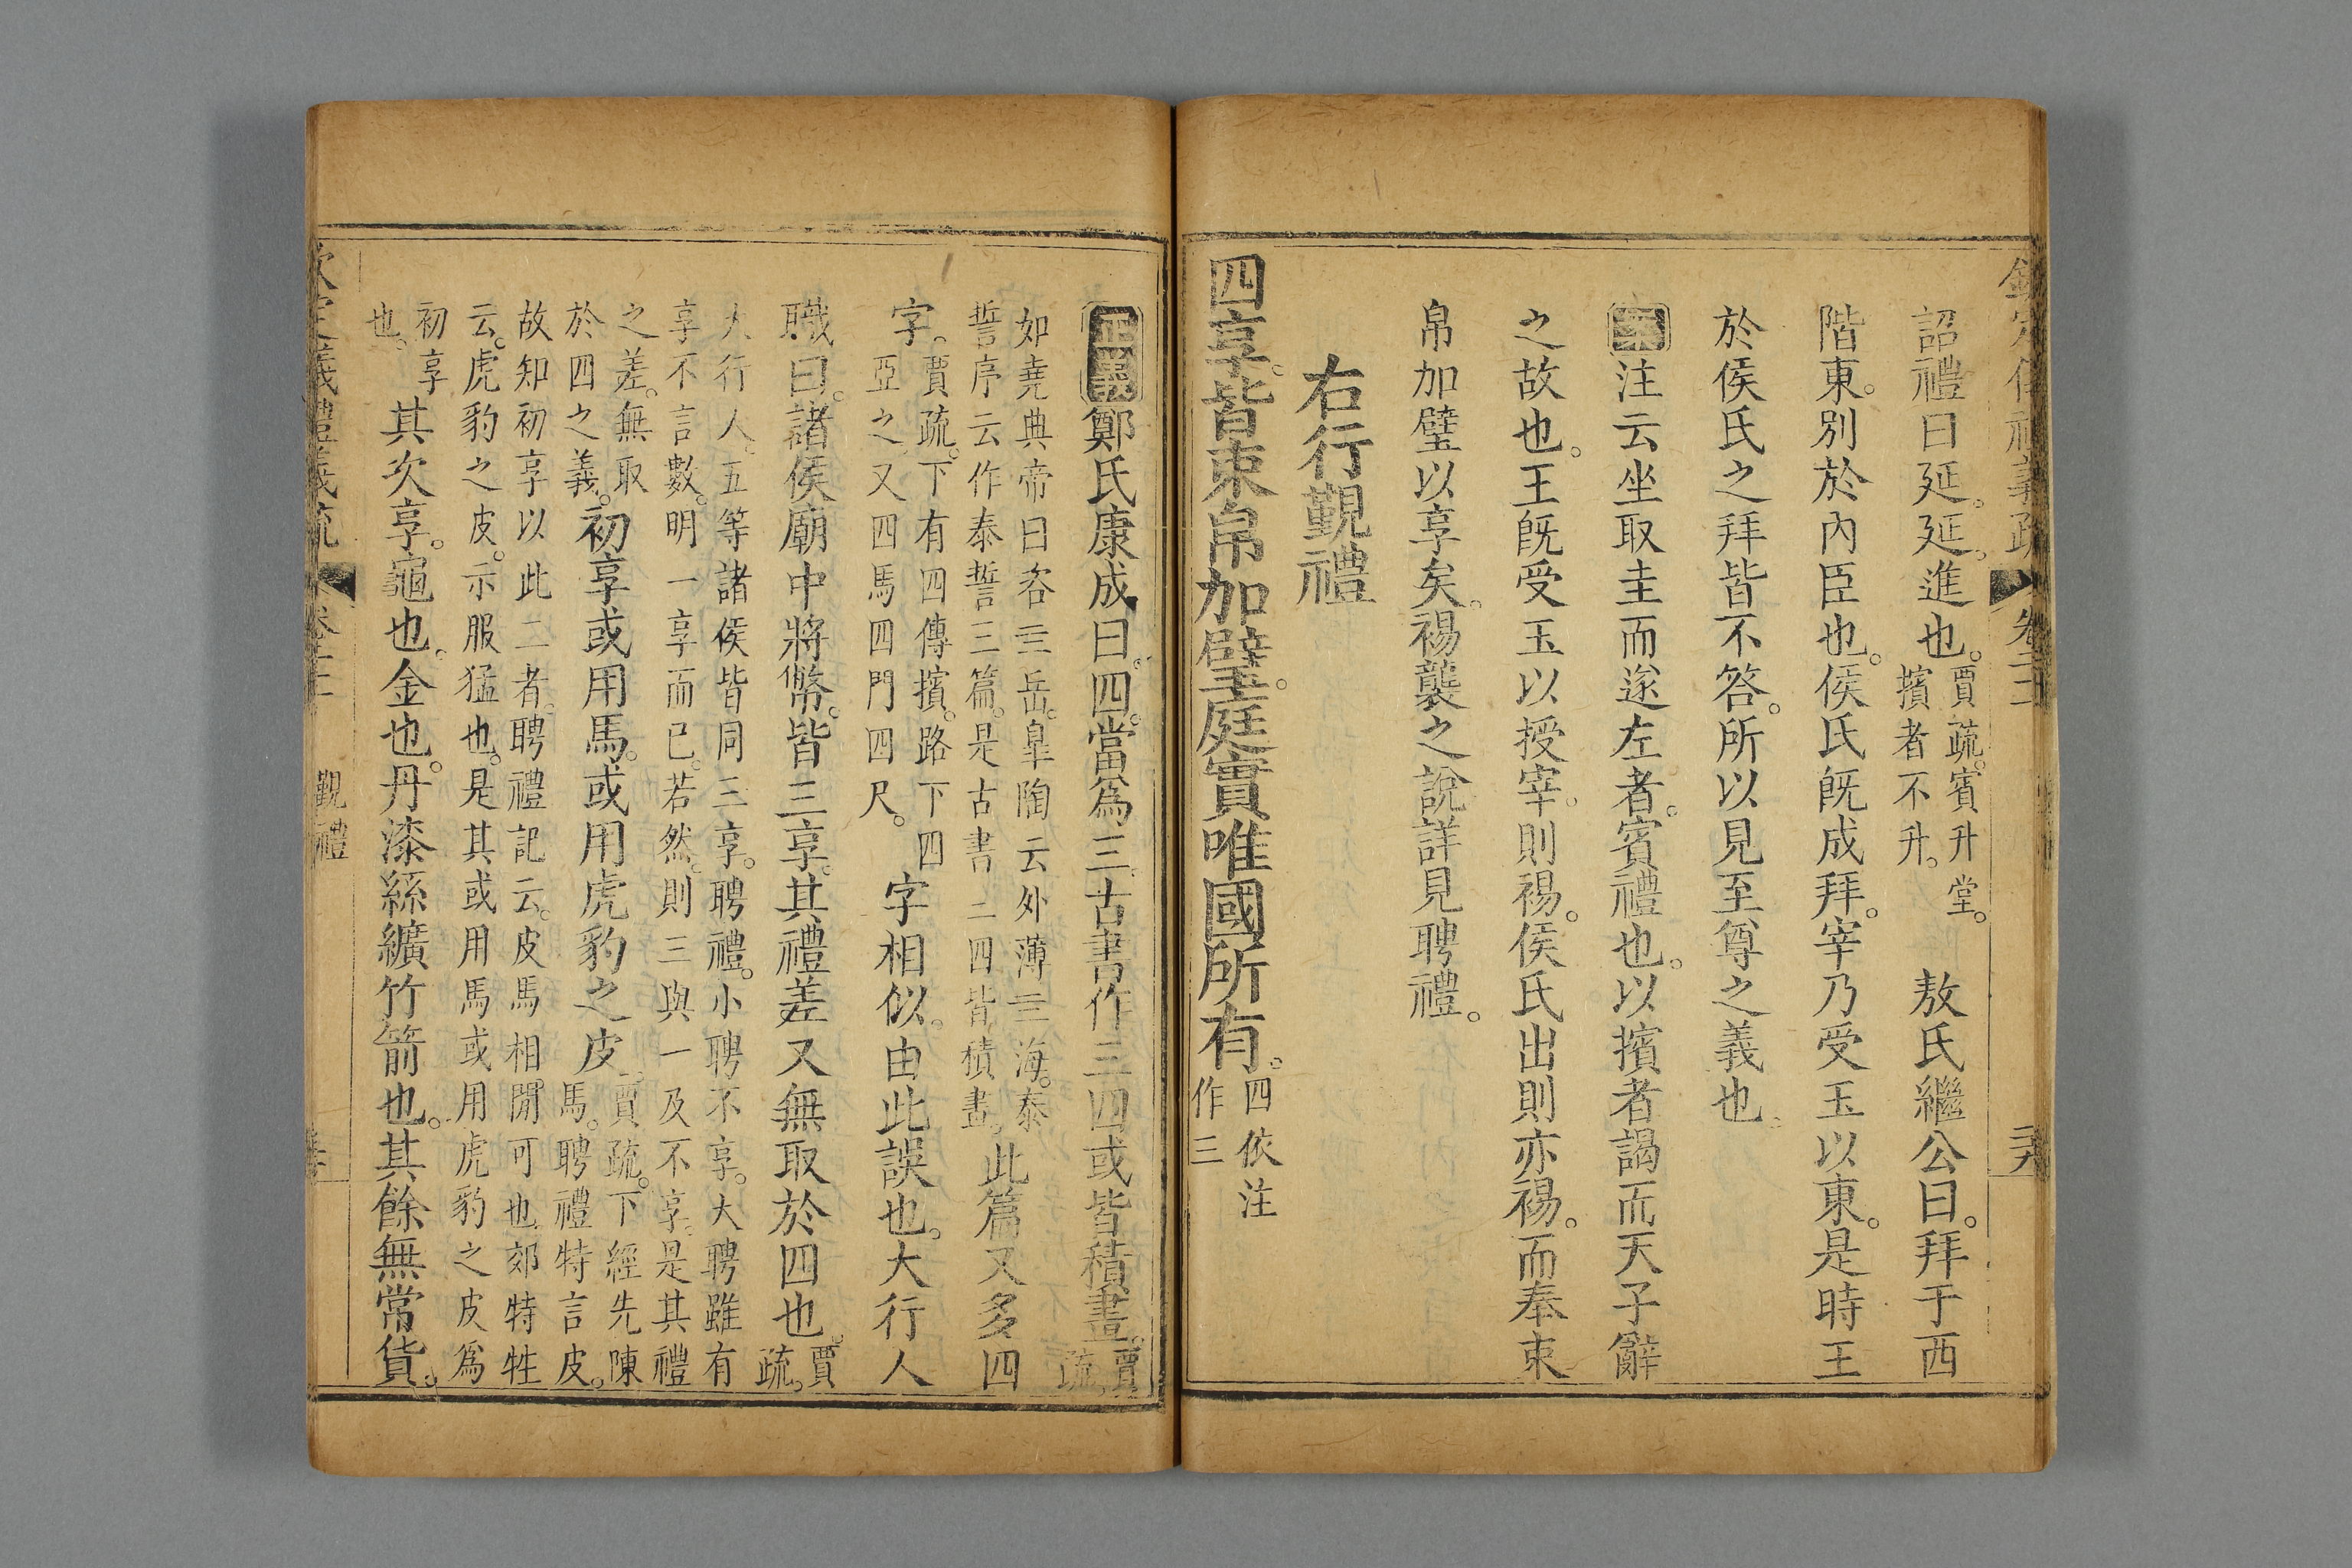 欽定儀禮義疏 卷二十
詔禮曰延。延。進也。賈疏。賓升堂。擯者不升。 敖氏繼公曰。拜于西
階東。別於內臣也。侯氏旣成拜。宰乃受玉以東。是時王
於侯氏之拜皆不答。所以見至尊之義也
案注云坐取圭而遂左者。賓禮也。以擯者謁而天子辭
之故也。王旣受玉以授宰。則裼。侯氏出則亦裼。而奉束
帛加璧以享矣。裼襲之說詳見聘禮。
右行覲禮
四享。皆束帛加璧。庭實唯國所有。四依注作三
正義鄭氏康成曰。四。當爲三。古書作三四或皆積畫。賈疏。
如堯典帝曰咨亖岳。皐陶云外薄亖海。泰
誓序云作泰誓三篇。是古書三四皆積畫。此篇又多四
字。賈疏。下有四傳擯。路下四
亞之又四馬四門四尺。字相似。由此誤也。大行人
職曰。諸侯廟中將幣。皆三享。其禮差又無取於四也。賈疏。
大行人。五等諸侯皆同三享。聘禮。小聘不享。大聘雖有
享不言數。明一享而已。若然。則三與一及不享。是其禮
之差。無取
於四之義。初享或用馬。或用虎豹之皮賈疏。下經先陳
馬。聘禮特言皮。
故知初享以此二者。聘禮記云。皮馬相閒可也。郊特牲
云。虎豹之皮。示服猛也。是其或用馬或用虎豹之皮爲
初享
也。其次享。龜也。金也。丹漆絲纊竹箭也。其餘無常貨。
欽定儀禮義疏 卷二十 覲禮